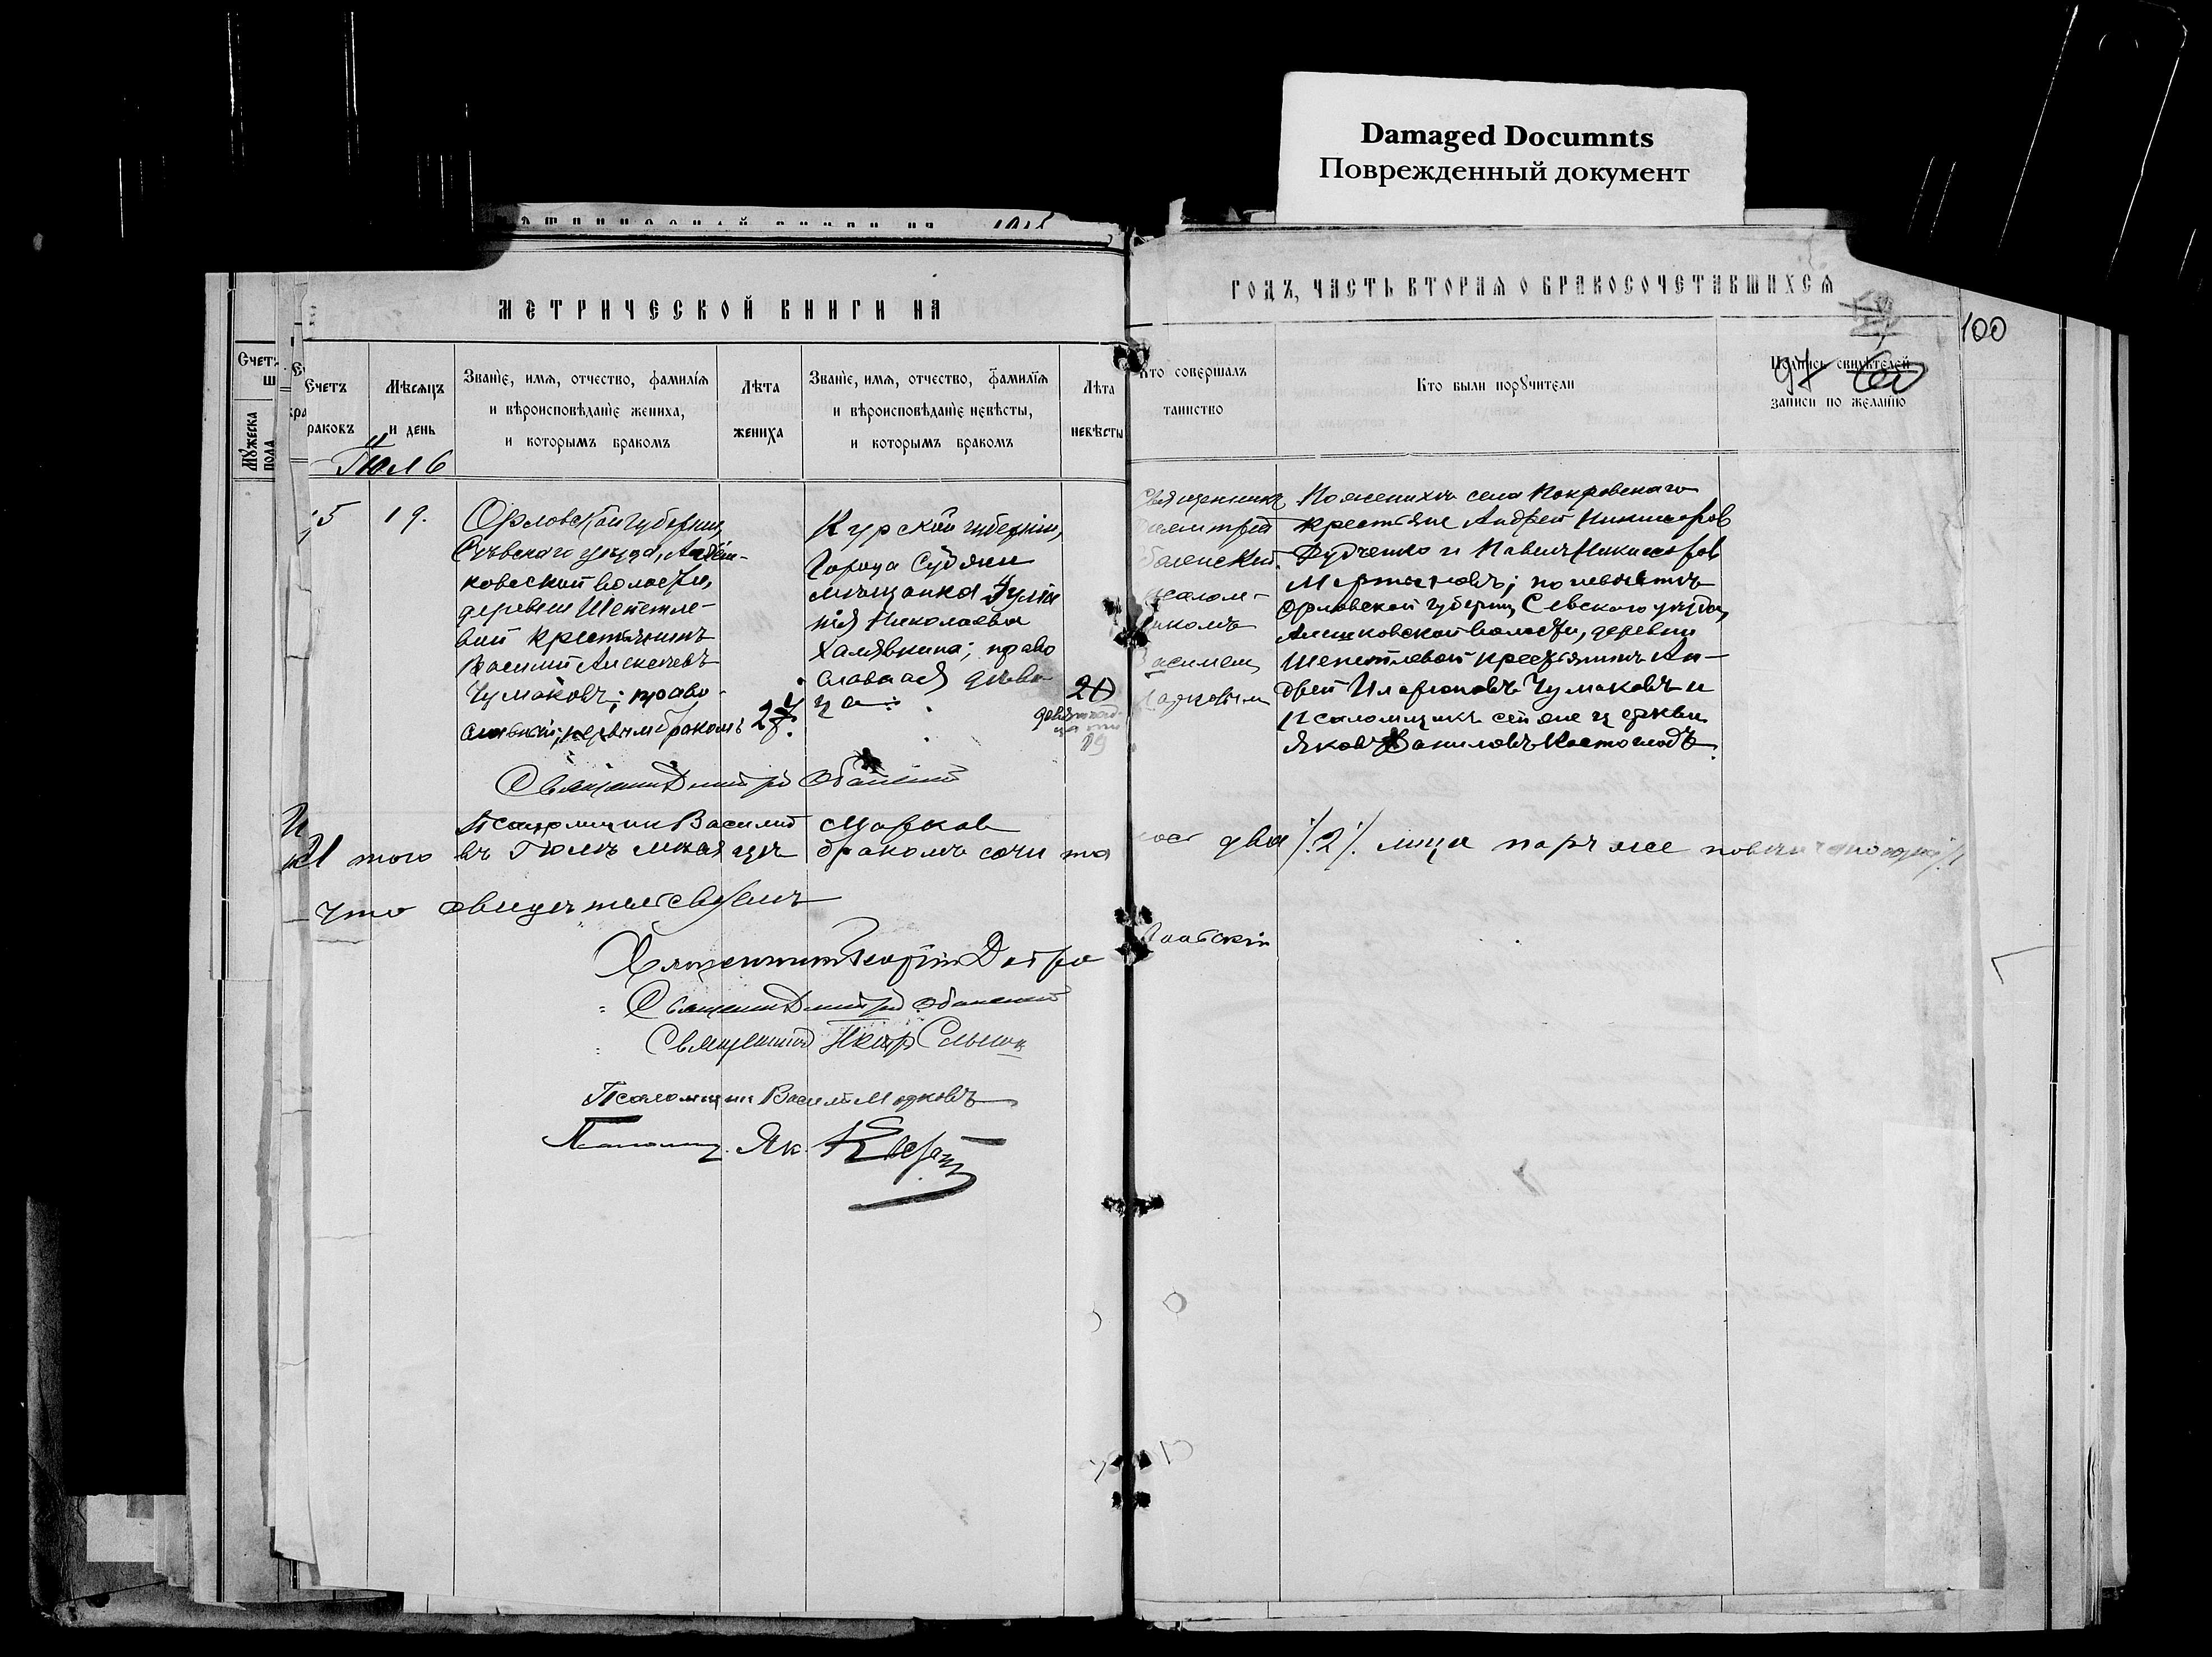 Damaged Documnts
Поврежденный документ
МЕТРИЧЕСКОЙ КНИГИ НА
ГОДЪ, ЧАСТЬ ВТОРАЯ О БРАКОСОЧЕТАВШИХСЯ
100
Счетъ
раковъ
Мѣсяцъ
и день
Званіе, имя, отчество, фамилія
и вѣроисповѣданіе жениха,
и которымъ бракомъ
Лѣта
жениха
Званіе, имя, отчество, фамилія
и вѣроисповѣданіе невѣсты,
и которымъ бракомъ
Лѣта
невѣсты
Кто совершалъ
таинство
Кто были поручители
Подпись свидѣтелей
записи по желанію
Мужеска
пола
Іюль
5
19.
Орловской губерніи,
Сѣвскаго уѣзда,
ковской волости,
деревни Шепетле-
вой крестьянинъ
Василій Алексѣевъ
Чумаковъ; право-
славный; первымъ бракомъ
27.
Курской губерніи,
Города Суджи
мѣщанка Іулia
нія Николаева
Халявкина; право
славная дѣви
ца
20
19
Священникъ
Димитрій
Василіем
Марковым
По женихѣ села Покровскаго
крестьяне Андрей Никифоров
Дудченко и Павелъ Никифоров
Мартыновъ; по невѣстѣ
Орловской губерніи, Севского уѣзда,
Алешковской волости, деревни
Шепетлевой крестьянинъ Ан-
дрей Иларіоновъ Чумаковъ и
псаломщикъ сей же церкви
Яковъ
Священник Димитрій Оболенскій
Псаломщик Василий Марков
И того въ Іюлѣ мѣсяцѣ бракомъ сочета
лос два /.2/. лица паръ же
что свидѣтельствуемъ
Священник Георгій Добро
Священник Димитрій Оболенскій
Священник Петр
Псаломщик Василій Марковъ
Псаломщ. Як.